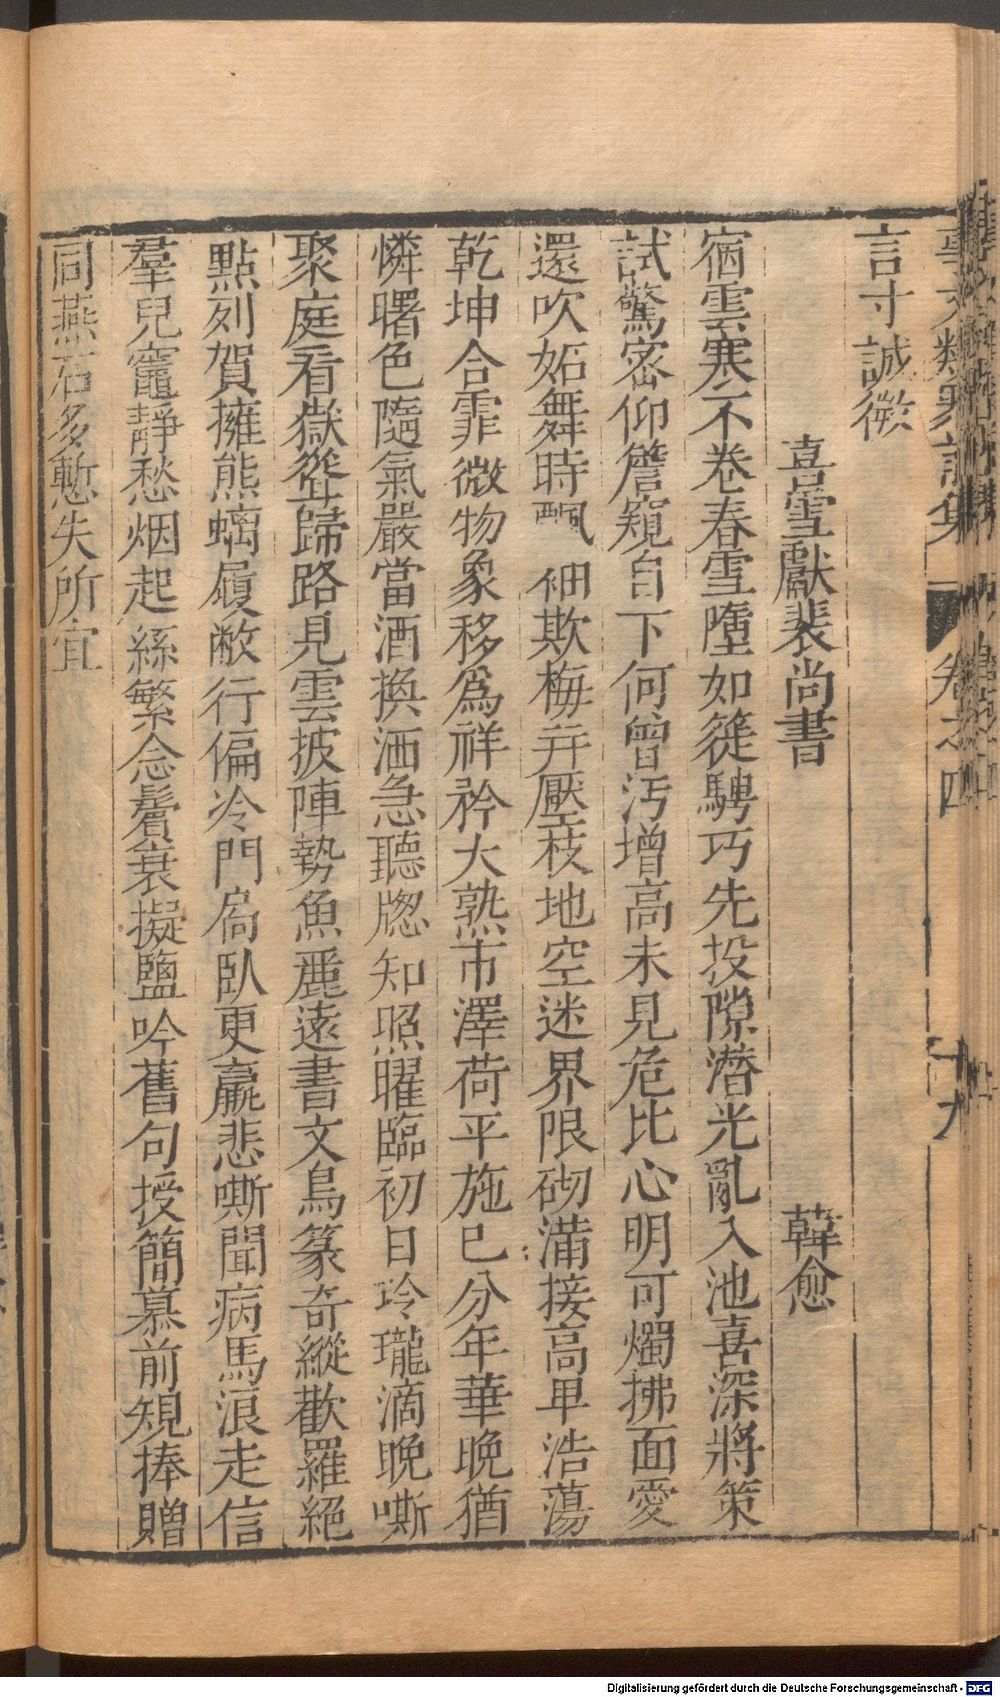 言寸誠徴
喜雪獻裴尚書 韓愈
宿雲寒不卷春雪墮如簁騁巧先投隙潛光亂入池喜深將策
試驚密仰簷窺自下何曾汚增高未見危比心明可燭拂面愛
還吹妬舞時飄袖欺梅并壓枝地空迷界限砌滿接高卑浩蕩
乾坤合霏微物象移爲祥矜大熟布澤荷平施已分年華晚猶
憐曙色隨氣嚴當酒換洒急聽牕知照曜臨初日玲瓏滴晚嘶
聚庭看嶽聳歸路見雲披陣勢魚麗遠書文鳥篆奇縱歡羅絕
點列賀擁熊螭履敝行偏冷門扃臥更羸悲嘶聞病馬浪走信
羣兒竈靜愁烟起絲繁念鬢衰擬鹽吟舊句授簡慕前規捧贈
同燕石多慙失所宜
卷之四
十九
Digitalisierung gefördert durch die Deutsche Forschungsgemeinschaft - DFG